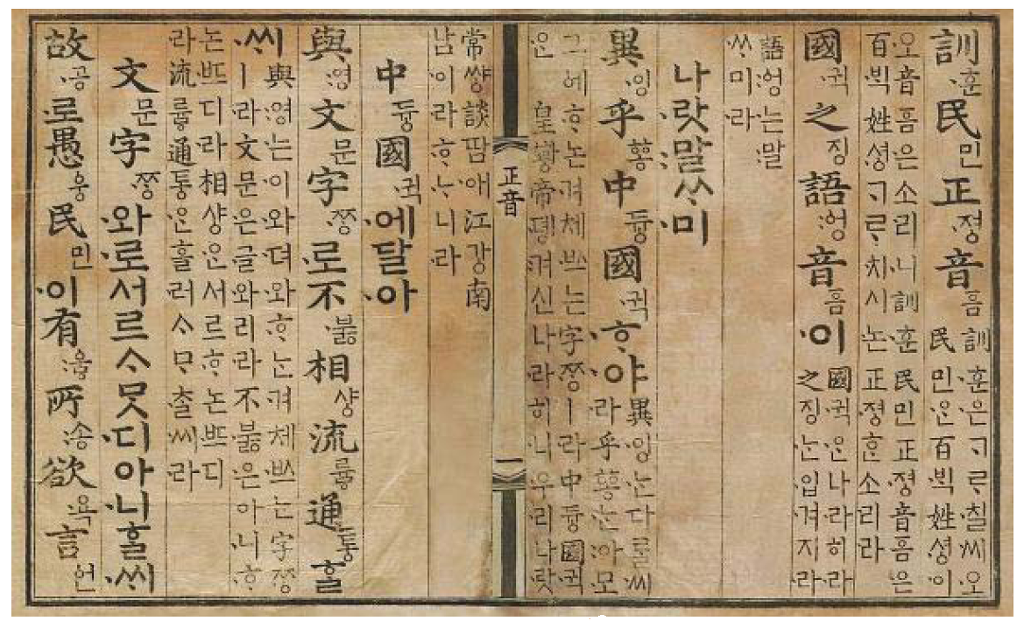 訓훈民민正졍音ᅙᅳᆷ
訓훈은ᄀᆞᄅᆞ칠씨오
民민ᄋᆞᆫ百ᄇᆡᆨ姓셩이
오音ᅙᅳᆷ은소리니訓훈民민正졍音ᅙᅳᆷ은
百ᄇᆡᆨ姓셩ᄀᆞᄅᆞ치시논正졍ᄒᆞᆫ소리라
國귁之징語ᅌᅥᆼ音ᅙᅳᆷ이
國귁ᄋᆞᆫ나라히라
之징ᄂᆞᆫ입겨지라
語ᅌᅥᆼ는말
ᄊᆞ미라
나랏말ᄊᆞ미
異잉乎ᅘᅩᆼ中듀ᇰ國귁ᄒᆞ야
異잉ᄂᆞᆫ다ᄅᆞᆯ씨
라乎ᅘᅩᆼᄂᆞᆫ아모
그ᅌᅦᄒᆞ논겨체ᄡᅳ는字ᄍᆞᆼㅣ라中듀ᇰ國귁
ᄋᆞᆫ皇ᅘᅪᇰ帝뎽겨신나라히니우리나랏
正音 一
常썅談땀애江강南
남이라ᄒᆞᄂᆞ니라
中듀ᇰ國귁에달아
與영文문字ᄍᆞᆼ로不부ᇙ相샹流류ᇢ通토ᇰᄒᆞᆯ
ᄊᆡ
與영는이와뎌와ᄒᆞᄂᆞᆫ겨체ᄡᅳ는字ᄍᆞᆼ
ㅣ라文문은글와리라不부ᇙ은아니ᄒᆞ
논ᄠᅳ디라相샹ᄋᆞᆫ서르ᄒᆞ논ᄠᅳ디
라流류ᇢ通토ᇰᄋᆞᆫ흘러ᄉᆞᄆᆞᄎᆞᆯ씨라
文문字ᄍᆞᆼ와로서르ᄉᆞᄆᆞᆺ디아니ᄒᆞᆯᄊᆡ
故공로愚ᅌᅮᆼ民민이有ᅌᅮᇢ所송欲욕言ᅌᅥᆫ